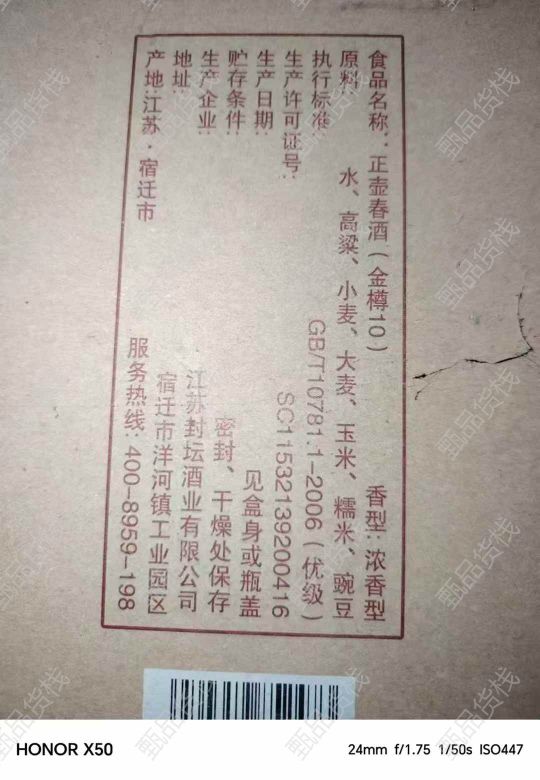 食品名称：正壶春酒（金樽10） 香型：浓香型
原料：水、高粱、小麦、大麦、玉米、糯米、豌豆
执行标准：GB/T10781.1-2006（优级）
生产许可证号：SC11532139200416
生产日期：见盒身或瓶盖
贮存条件：密封、干燥处保存
生产企业：江苏封坛酒业有限公司
地址：宿迁市洋河镇工业园区
产地：江苏·宿迁市 服务热线：400-8959-198
HONOR X50
24mm f/1.75 1/50s ISO447
甄品货栈